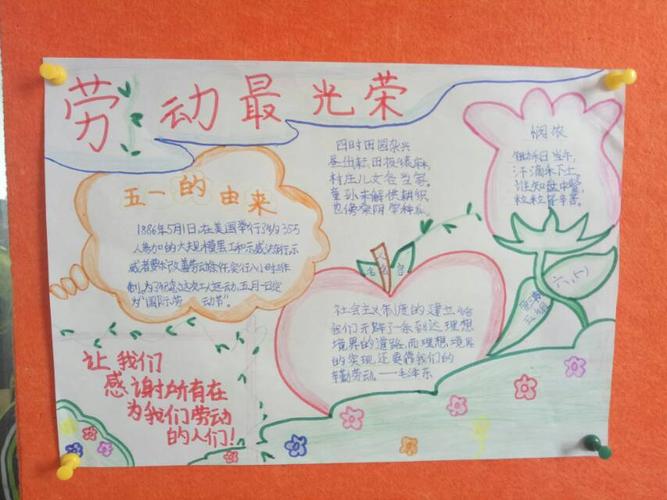 劳动最光荣
五一的由来
1886年5月1日,在美国举行了约355
人参加的大规模罢工和示威游行示
威者要求改善劳动条件,实行八小时工作
制,为了纪念这次工人运动,五月一日定
为"国际劳 动节"。
四时田园杂兴
昼出耘田夜绩麻,
村庄儿女各当家。
童孙未解供耕织
也傍桑阴学种瓜。
悯农
锄禾日当午,
汗滴禾下土。
谁知盘中餐
粒粒皆辛苦。
社会主义制度的建立给
我们开辟了一条到达理想
境界的道路,而理想境界
的实现还要靠我们的
辛勤劳动。——毛泽东
让我们
感谢所有在
为我们劳动
的人们!